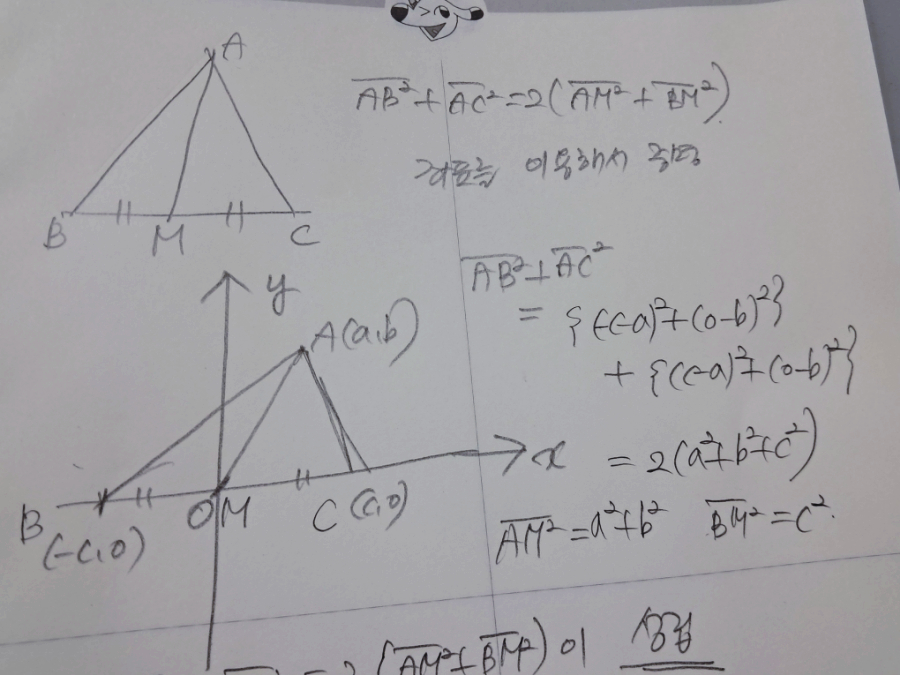 A
B M C
AB² + AC² = 2(AM² + BM²)
좌표를 이용해서 증명
y
A(a,b)
x
B
(-c,0)
O M
C(c,0)
AB² + AC²
= {(-c-a)² + (0-b)²}
+ {(c-a)² + (0-b)²}
= 2(a²+b²+c²)
AM² = a²+b² BM² = c².
= 2(AM² + BM²) 이 성립